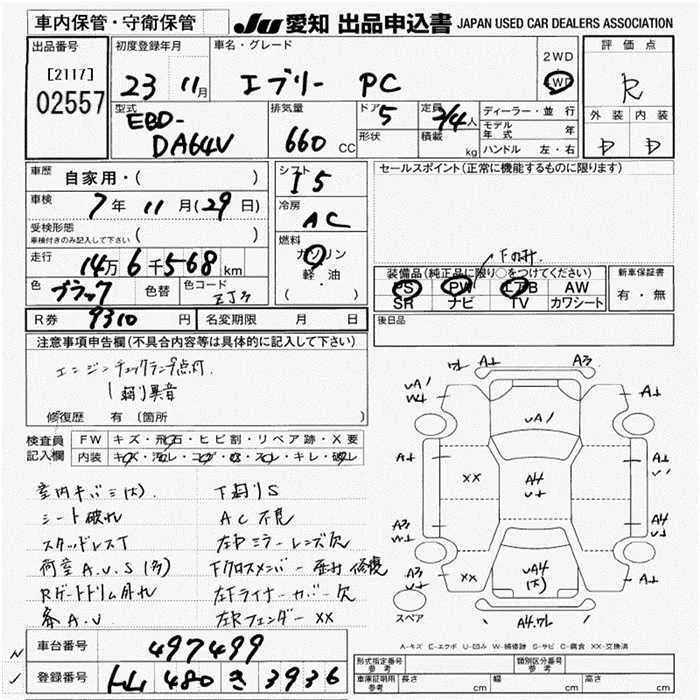 車内保管・守衛保管
JU 愛知 出品申込書 JAPAN USED CAR DEALERS ASSOCIATION
出品番号
[2117]
02557
初度登録年月
23 11月
車名・グレード
エブリー PC
2WD
4WD
評価点
R
外装 内装
D D
型式
EBD-
DA64V
排気量
660 CC
ドア
5
形状
定員
2/4人
積載
kg
ディーラー・並行
モデル年式 年
ハンドル 左・右
車歴
自家用・( )
車検
7年 11月(29日)
受検形態
車検付きのみ記入して下さい ( )
走行
14万6千568km
色
ブラック
色替
色コード
ZJ3
R券 9310円
名変期限 月 日
シフト
I5
冷房
AC
燃料
ガソリン
軽・油
( )
セールスポイント(正常に機能するものに限ります)
Fのみ
装備品(純正品に限り○をつけてください)
PS PW エアB AW
SR ナビ TV カワシート
新車保証書
有・無
後日品
注意事項申告欄(不具合内容等は具体的に記入して下さい)
エンジンチェックランプ点灯.
異音
修復歴 有(箇所 )
検査員記入欄
FW キズ・飛石・ヒビ割・リペア跡・X要
内装 キズ・汚レ・コゲ・穴・スレ・キレ・破レ
室内キバミ(大)
シート破れ
スタッドレスT
荷室A.U.S(多)
Rゲートトリム外れ
下廻りS
AC不良
左Fミラーレンズ欠
Fクロスメンバー 修復
左Fライナーカバー欠
左Rフェンダーxx
A1
A3
UA1
W1
UA1
A1
A1
XX
A4
U1
A1
U1
A3
W1
A4
U1
A3
UA1
XX
UA4
(大)
A1
A4.71
スペア
A-キズ E-エクボ U-凹み W-補修跡 S-サビ C-腐食 XX-交換済
車台番号 497499
登録番号 480 き 3936
形式指定番号
参考
類別区分番号
参考
車庫証明用
参考
長さ cm
幅 cm
高さ cm